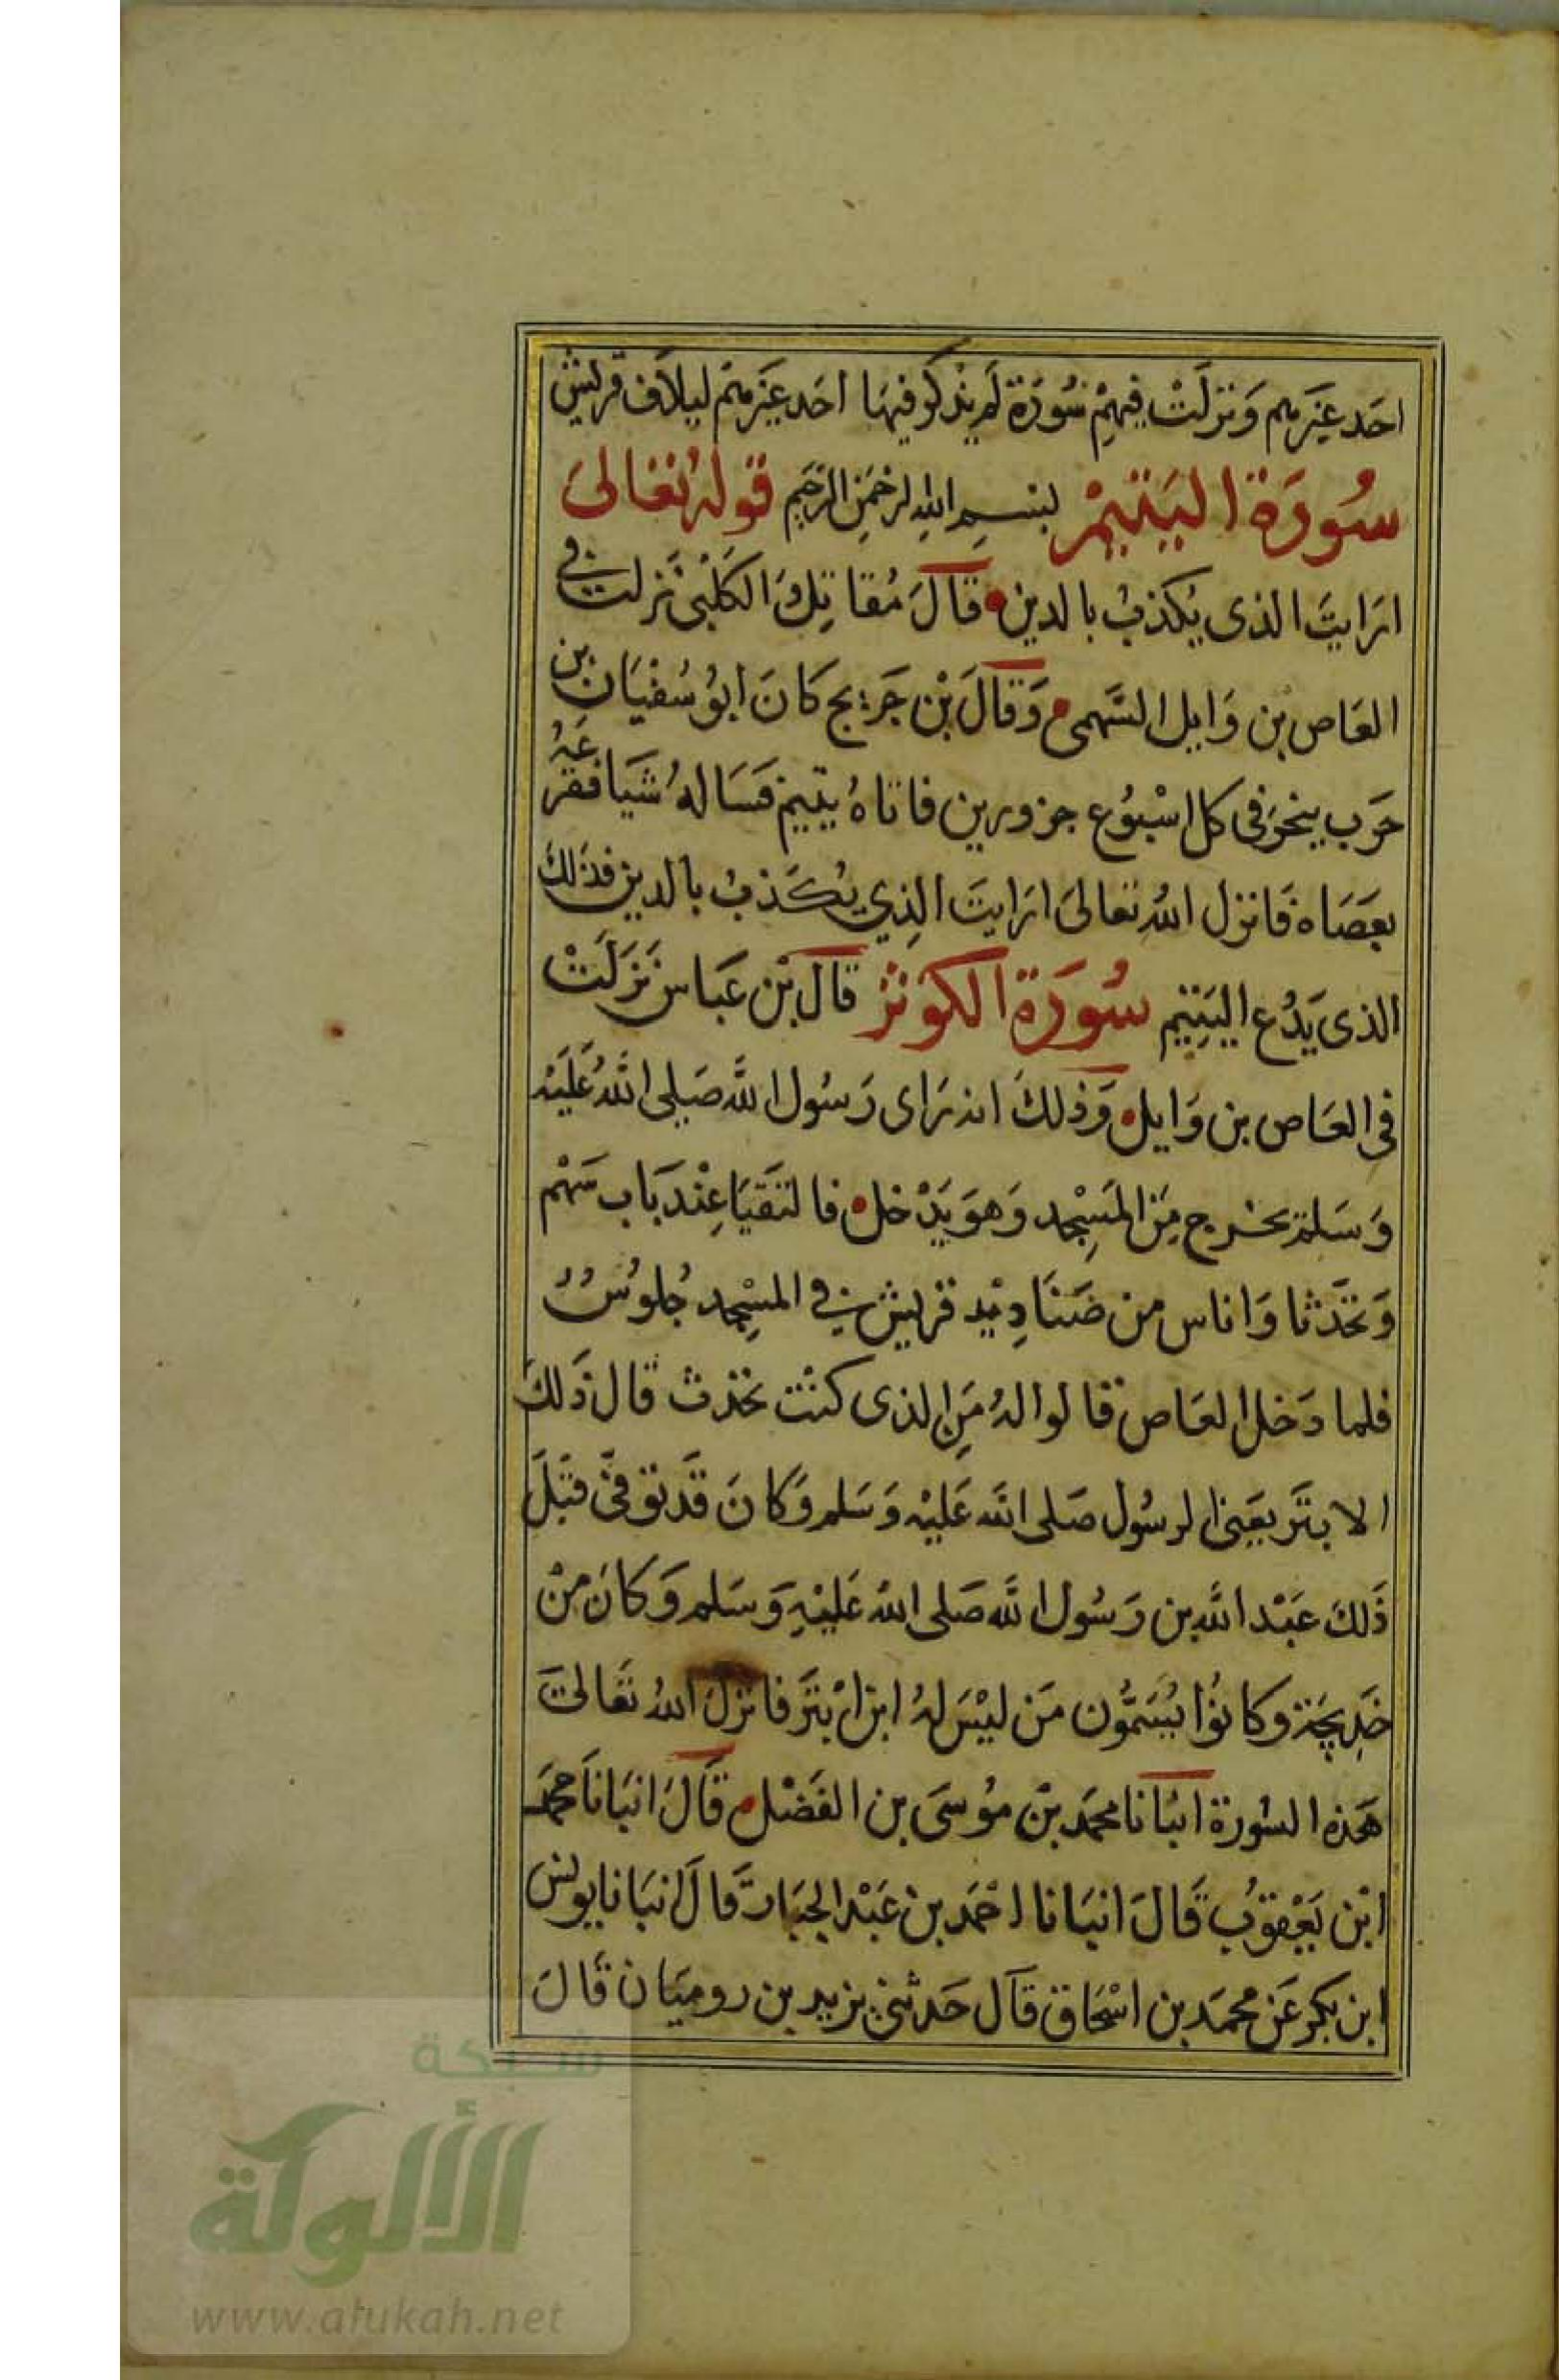 احَد غَيرهم وَنزلَتْ فيهِمْ سُورَة لَم يذكر فيهَا احَد غيَرهم ليلاف قريش
سُورَة اليَتيمْ بسم الله الرحمَن الرَّحيم قوله تعَالىَ
ارَايتَ الذى يكذبُ بالدين قالَ مُقاتل وَالكلبْى نَزلت في
العَاص بن وَايل السَّهمى وَقالَ بْن جَريج كانَ ابوُ سُفْيَان بن
حَرب ينحرَ فى كل اسْبُوع جزورين فاتاهُ يتيم فسَالهُ شيَا فقرعَهُ
بعَصَاه فَانزل اللهُ تعالىَ ارَايتَ الذِي يُكَذبُ بالدين فذلك
الذى يَدُع اليَتيم سُورَة الكَوثر قالَ بْن عَباس نَزَلَتْ
فى العَاص بن وَايل وَذلكَ انه رَاى رَسُول الله صَلى اللهُ عَليَه
وَسَلم يخرج مِنَ المَسِجد وَهوَ يَدْخل فالتقيَا عِنْدَ بَاب سَهْم
وَتحَدثا وَاناس من صَنَادِيْد قريش في المسْجِد جُلوُسُ
فلما دَخل العَاص قالوا لهُ مَنِ الذى كنْت تحدث قال ذَلكَ
الابتَر يعَنى الرسُول صَلى الله عَليْه وَسَلم وَكانَ قدَ توفىَّ قبْلَ
ذَلكَ عبَدْ الله بن رَسُول الله صَلى الله عَليْهِ وَسَلم وَكانَ مِنْ
خَدِيجَة وكانوُا يُسَمُّون مَن ليْسَ لهُ ابن ابْتَر فانزلَ اللهُ تعَالىَ
هَذه السُورة انبَانا محمَد بْن موُسَى بن الفَضْل قالَ انبَانَا محمَد
ابْن يَعْقوُب قَالَ انبَانا احْمَد بن عَبْد الجبَار قالَ انبَانا يونس
ابن بكير عَن محمَد بن اسْحَاق قالَ حَدثنى يزيد بن روميَان قَالَ
شبكة
الألوكة
www.alukah.net